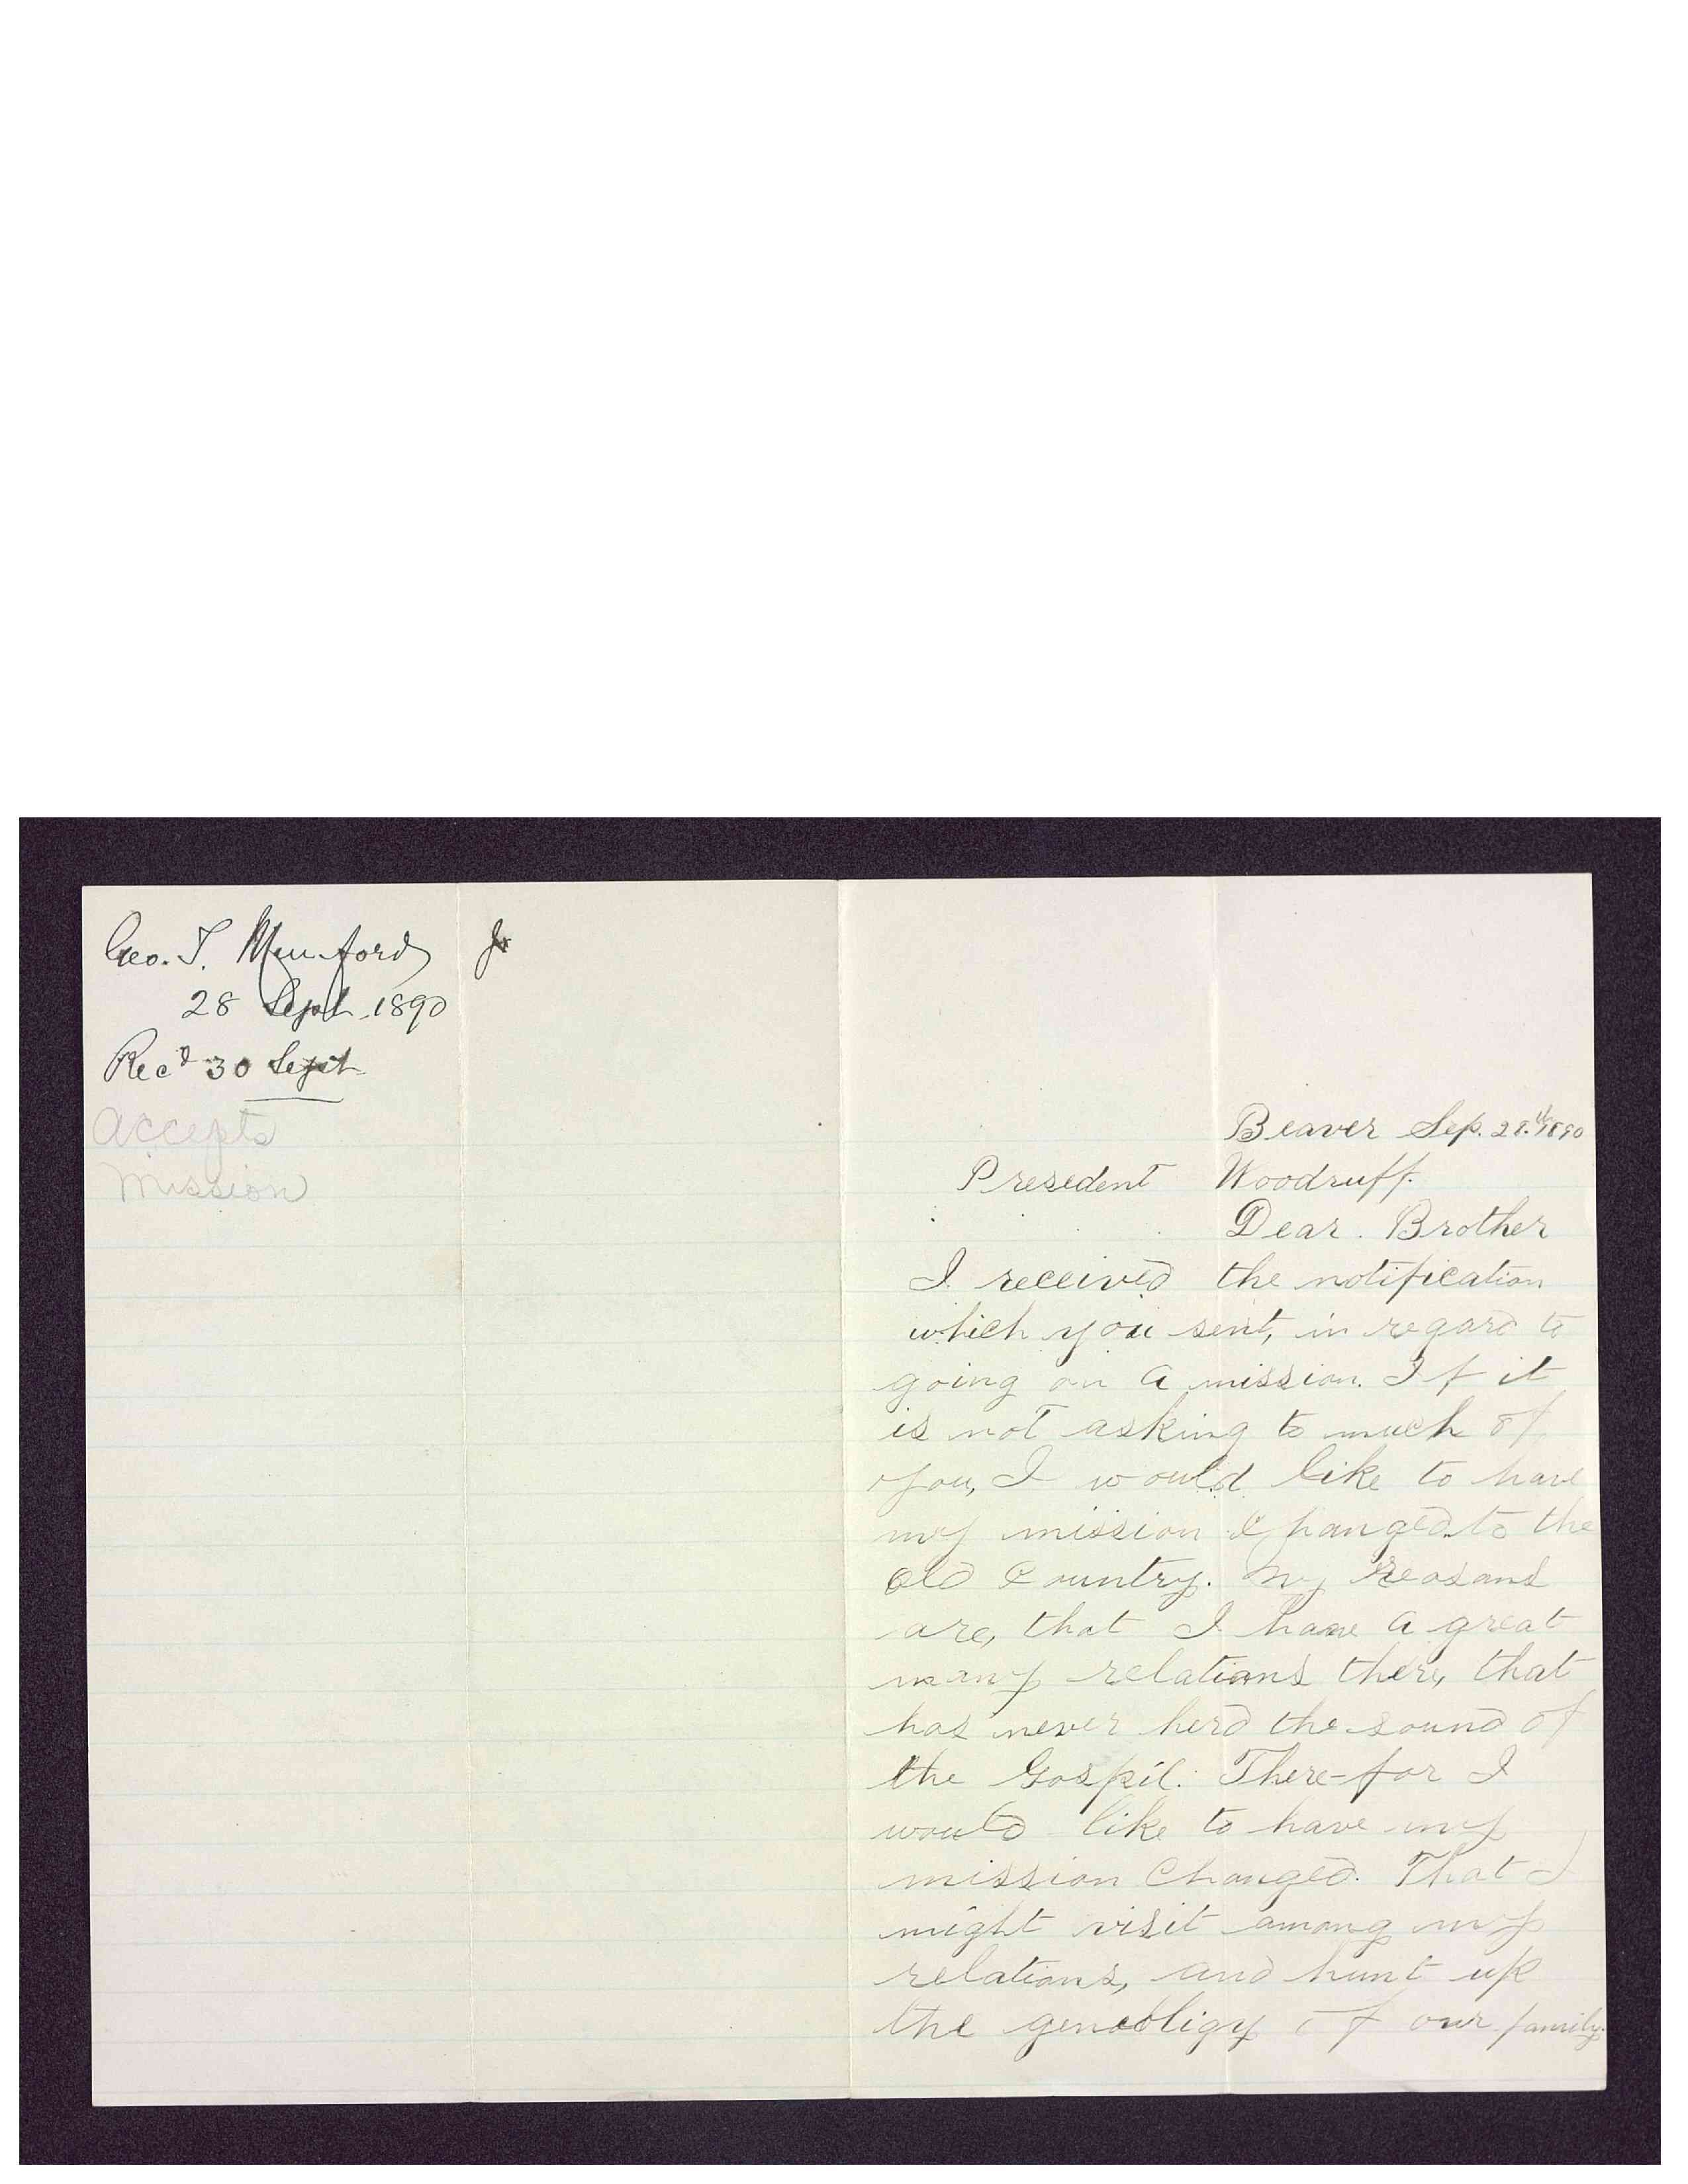 Geo. T. Mumford Jr
28 Sept. 1890
Recd 30 Sept
Accepts
Mission
Beaver Sep. 28.th 1890
Presedent Woodruff.
Dear. Brother
I received the notification
which you sent, in regard to
going on a mission. If it
is not asking to much of
you, I would like to have
my mission changed to the
old country. My reasons
are, that I have a great
many relations there, that
has never herd the sound of
the Gospil. There-for I
would like to have my
mission Changed. That I
might visit among my
relations, and hunt up
the genooligy of our family.